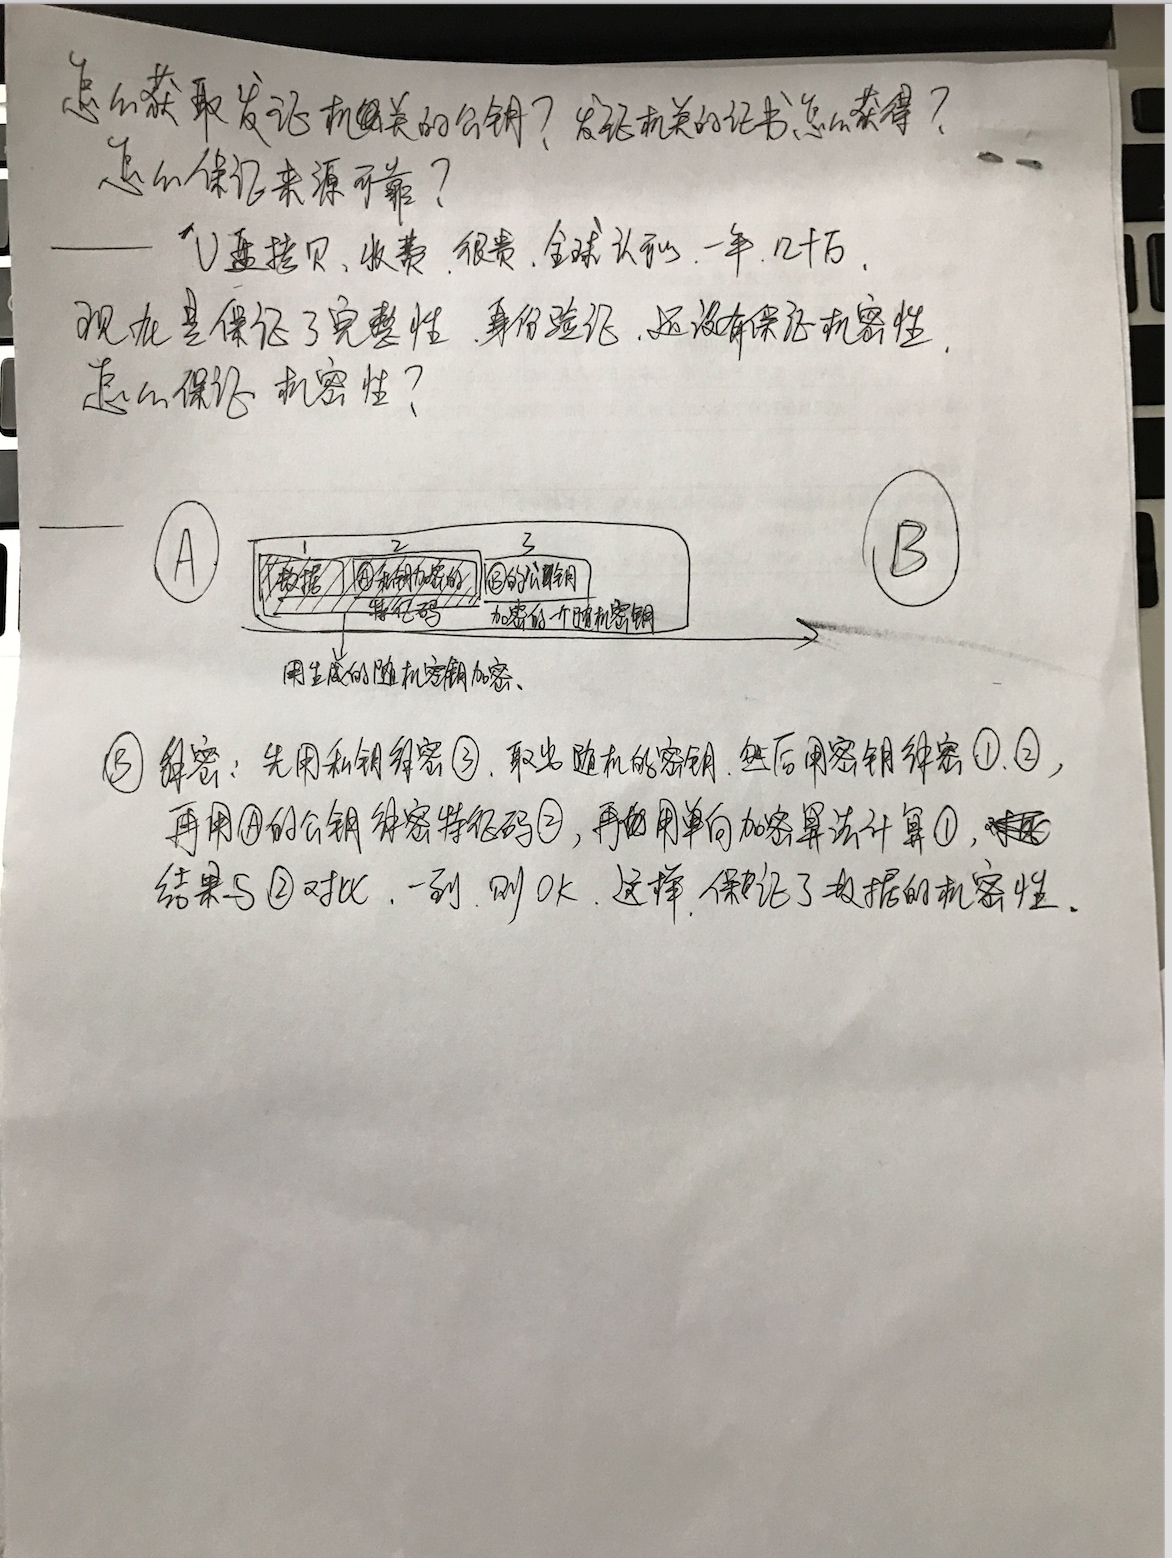 怎么获取发证机关的公钥？发证机关的证书怎么获得？
怎么保证来源可靠？
U盘拷贝、收费、很贵、全球认可、一年、几十万.
现在是保证了完整性、身份验证、还没有保证机密性.
怎么保证机密性？
A
B
1 2 3
数据 Ⓐ私钥加密的 Ⓑ的公钥
特征码 加密的一个随机密钥
用生成的随机密钥加密、
Ⓑ 解密：先用私钥解密③、取出随机的密钥、然后用密钥解密①、②，
再用Ⓐ的公钥解密特征码②，再用单向加密算法计算①，
结果与②对比、一致、则OK、这样、保证了数据的机密性.